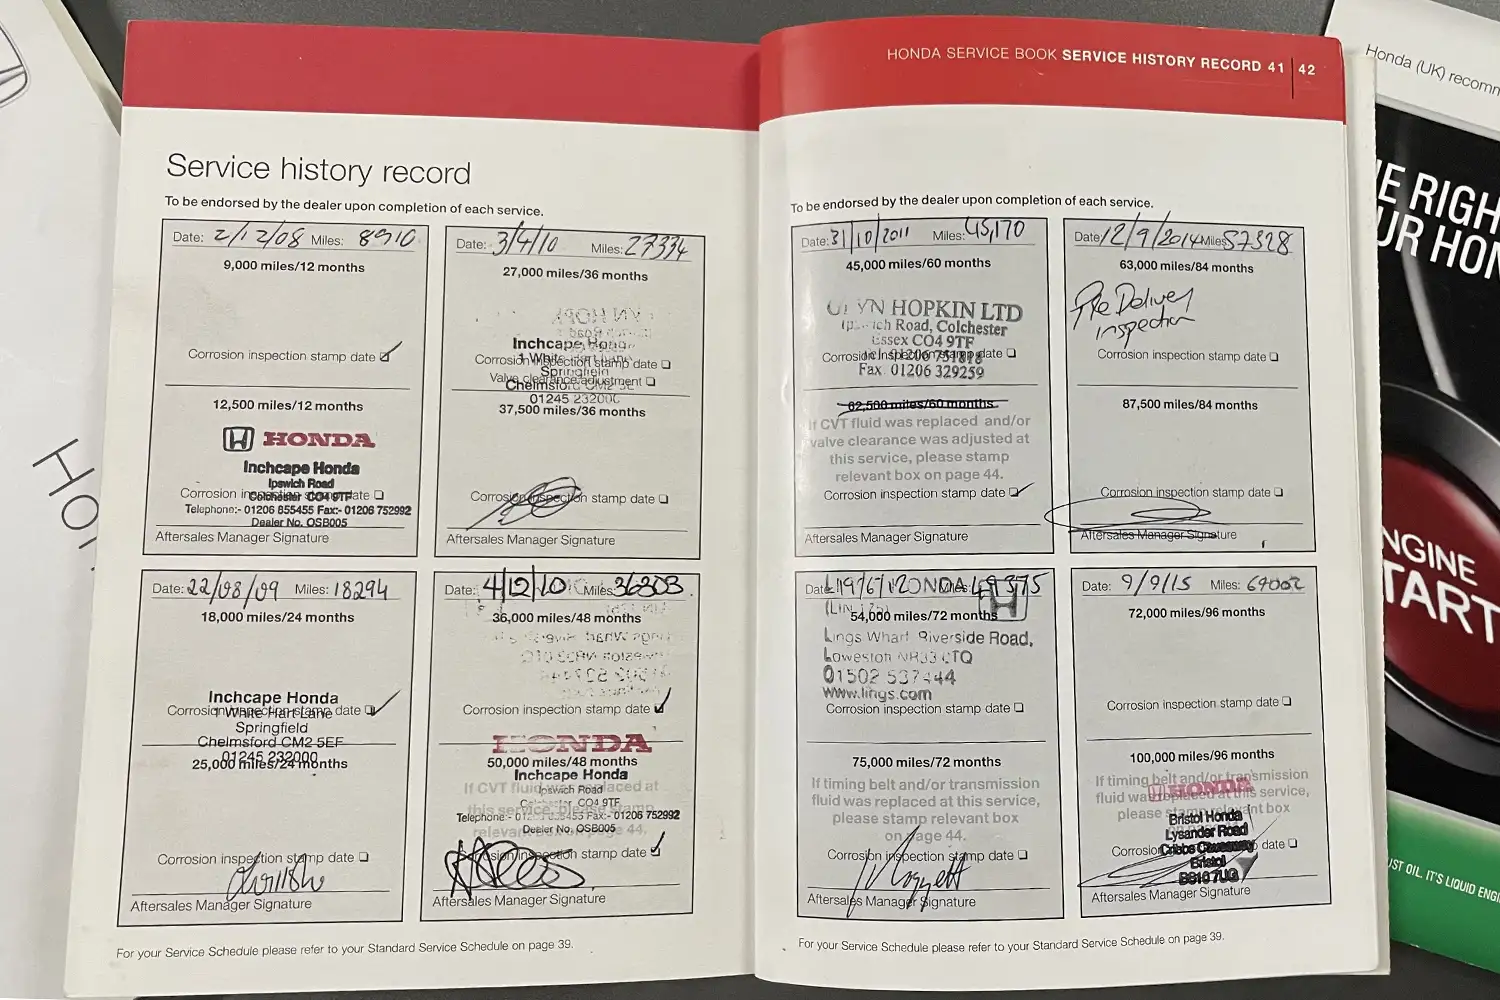 HONDA SERVICE BOOK SERVICE HISTORY RECORD 41 | 42
Service history record
To be endorsed by the dealer upon completion of each service.
Date: 2/12/08 Miles: 8910
9,000 miles/12 months
Corrosion inspection stamp date
12,500 miles/12 months
HONDA
Inchcape Honda
Ipswich Road
Corrosion inspection stamp date
Colchester CO4 9TF
Telephone:- 01206 855455 Fax:- 01206 752992
Dealer No. OSB005
Aftersales Manager Signature
Date: 3/4/10 Miles: 27334
27,000 miles/36 months
Inchcape Honda
Corrosion inspection stamp date
1 White Hart Lane
Springfield
Valve clearance adjustment
Chelmsford CM2 5E
01245 232000
37,500 miles/36 months
Corrosion inspection stamp date
Aftersales Manager Signature
Date: 22/08/09 Miles: 18294
18,000 miles/24 months
Inchcape Honda
Corrosion inspection stamp date
1 White Hart Lane
Springfield
Chelmsford CM2 5EF
01245 232000
25,000 miles/24 months
Corrosion inspection stamp date
Aftersales Manager Signature
Date: 4/12/10 Miles: 36303
36,000 miles/48 months
Corrosion inspection stamp date
HONDA
50,000 miles/48 months
Inchcape Honda
If CVT fluid was replaced at
Ipswich Road
this service, please stamp
Colchester CO4 9TF
Telephone:- 01206 855455 Fax:- 01206 752992
relevant box on page 44.
Dealer No. OSB005
Corrosion inspection stamp date
Aftersales Manager Signature
For your Service Schedule please refer to your Standard Service Schedule on page 39.
To be endorsed by the dealer upon completion of each service.
Date: 31/10/2011 Miles: 45,170
45,000 miles/60 months
GLYN HOPKIN LTD
Ipswich Road, Colchester
Essex CO4 9TF
Corrosion inspection stamp date
Fax 01206 329259
62,500 miles/60 months
If CVT fluid was replaced and/or
valve clearance was adjusted at
this service, please stamp
relevant box on page 44.
Corrosion inspection stamp date
Aftersales Manager Signature
Date: 12/9/2014 Miles: 57328
63,000 miles/84 months
Pre Delivery
inspection
Corrosion inspection stamp date
87,500 miles/84 months
Corrosion inspection stamp date
Aftersales Manager Signature
Date: 19/6/12 Miles: 49375
HONDA
54,000 miles/72 months
Lings Wharf Riverside Road,
Lowestoft NR33 0TQ
01502 537444
www.lings.com
Corrosion inspection stamp date
75,000 miles/72 months
If timing belt and/or transmission
fluid was replaced at this service,
please stamp relevant box
on page 44.
Corrosion inspection stamp date
Aftersales Manager Signature
Date: 9/9/15 Miles: 69002
72,000 miles/96 months
Corrosion inspection stamp date
100,000 miles/96 months
If timing belt and/or transmission
fluid was replaced at this service,
HONDA
please stamp relevant box
Bristol Honda
Lysander Road
Corrosion date
Cribbs Causeway
Bristol
BS10 7UG
Aftersales Manager Signature
For your Service Schedule please refer to your Standard Service Schedule on page 39.
Honda (UK) recomm
E RIGH
UR HON
NGINE
TART
UST OIL. IT'S LIQUID ENG
HO